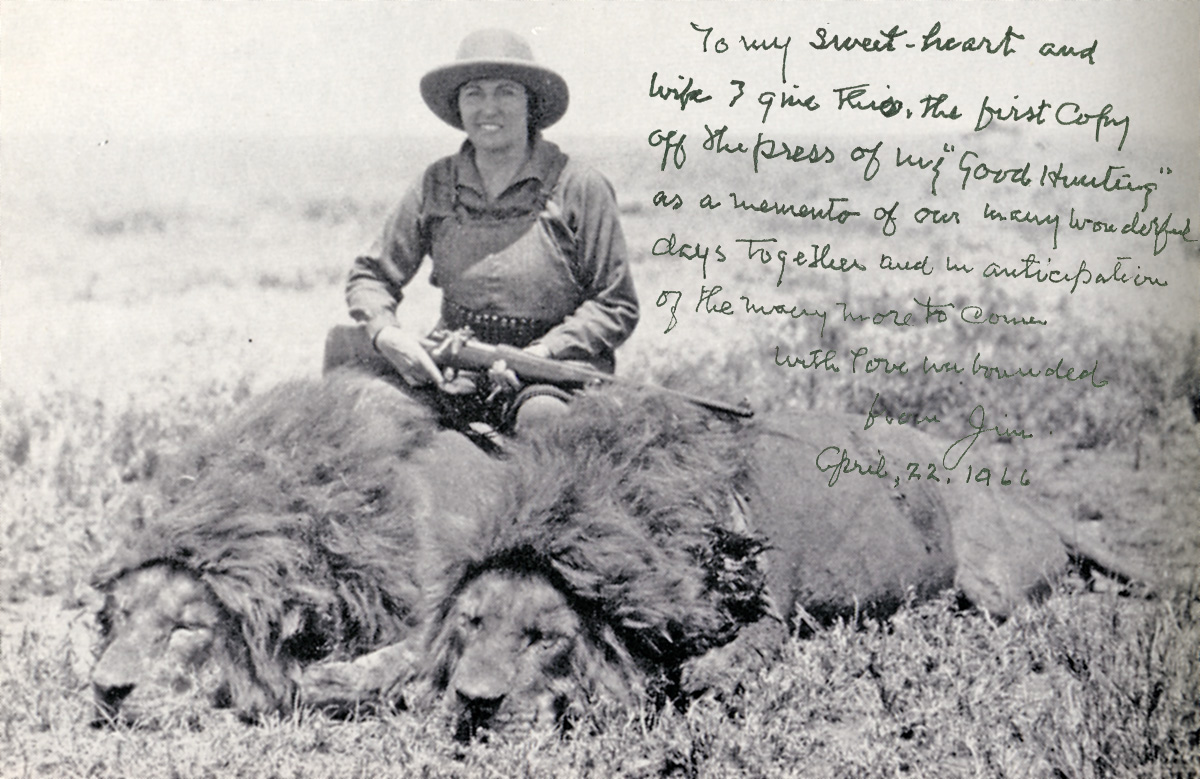 To my sweet-heart and
wife I give this, the first Copy
off the press of my "Good Hunting"
as a memento of our many wonderful
days together and in anticipation
of the many more to come
with love unbounded
from Jim.
April, 22. 1966